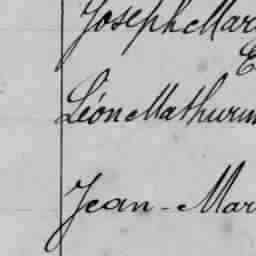 Joseph Mar
E
Léon Mathurin
Jean-Mar